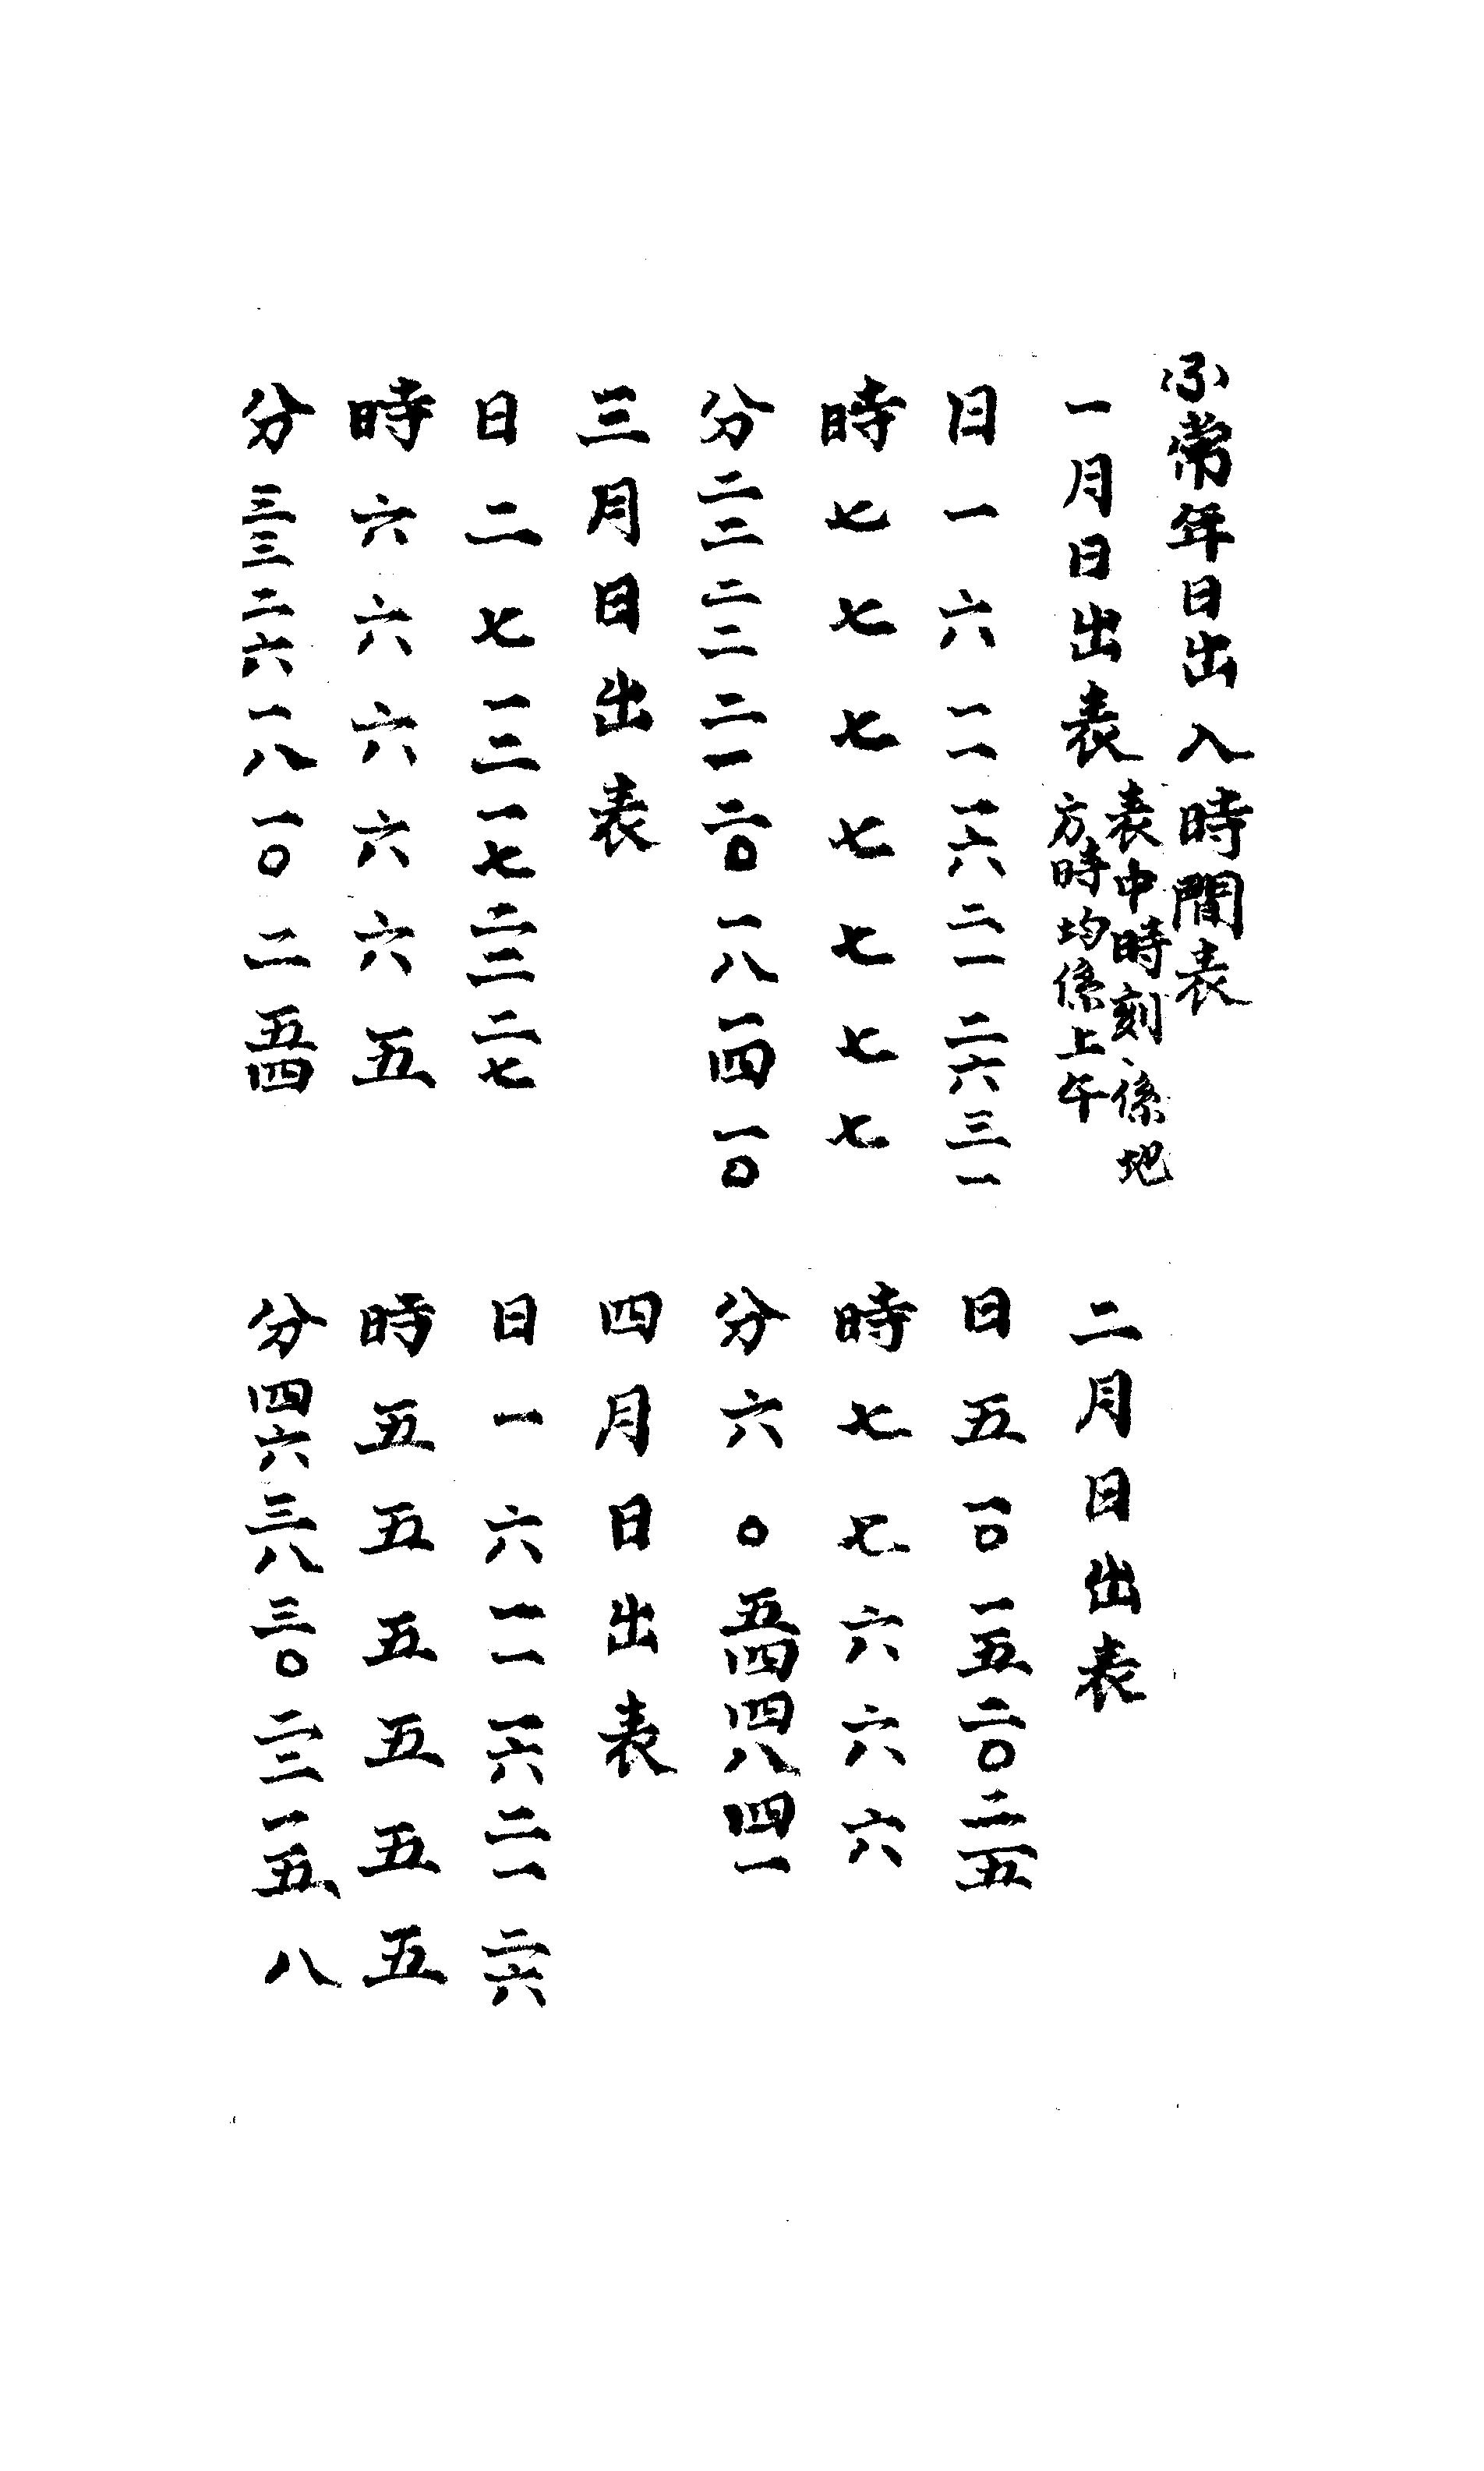 常年日出入時間表
一月日出表
表中時刻係地
方時均係上午
日一六一一一六二一二六三一
時七七七七七七七
分二二二二二一二〇一八一四一〇
二月日出表
日五一〇一五二〇二五
時七七六六六
分六〇五四四八四一
三月日出表
日二七一二一七二二二七
時六六六六六五
分三三二六一八一〇二五四
四月日出表
日一六一一一六二一二六
時五五五五五五
分四六三八三〇二二一五八